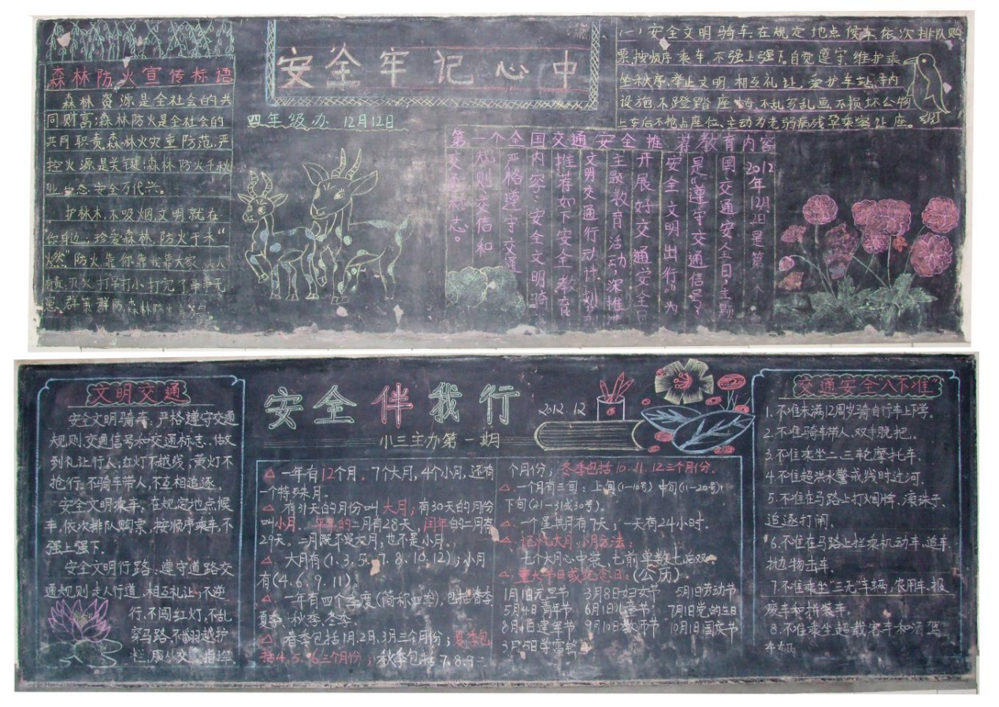 安全牢记心中
四年级办 12月12日
森林防火宣传标语
森林资源是全社会的共
同财富;森林防火是全社会的
共同职责.森林火灾重防范,严
控火源是关键;森林防火千秋
安全万代兴。
护林木,不吸烟,文明就在
你身边;珍爱森林,防火于未
(一)安全文明骑车,在规定地点候车,依次排队购
票,按顺序乘车,不强上强下,自觉遵守,维护乘
坐秩序,举止文明,相互礼让,爱护车站,车内
设施,不蹬踏座椅,不乱写乱画,不损坏公物
上车后不抢占座位、主动为老弱病残孕乘客让座。
2012年12月2日是第一个全国交通安全日,主题
是"遵守交通信号
安全文明出行"为
开展好交通安全日
主题教育活动,深推
文明交通行动计划
推荐如下安全教育
内容:安全文明骑
严格遵守交通
规则交信和
交通标志。
安全伴我行
2012.12
小三主办第一期
文明交通
安全文明骑车,严格遵守交通
规则,交通信号和交通标志,做
到礼让行人,红灯不越线,黄灯不
抢行,不骑车带人,不互相追逐。
安全文明乘车,在规定地点候
车,依次排队购票,按顺序乘车,不
强上强下。
安全文明行路,遵守道路交
通规则走人行道,相互礼让,不逆
行,不闯红灯,不乱
穿马路,不翻越护
栏,服从交警指挥.
△一年有12个月,7个大月,4个小月,还有
一个特殊月.
△有31天的月份叫大月;有30天的月份
叫小月.平年的二月有28天,闰年的二月有
29天,二月既不是大月,也不是小月.
△大月有(1.3.5.7.8.10.12);小月
有(4.6.9.11).
△一年有四个季度(简称四季),包括春季
夏季.秋季.冬季.
△春季包括1月,2月,3月三个月份;夏季包
括4.5.6三个月份;秋季包括7.8.9三
个月份;冬季包括10.11.12三个月份.
△一个月有三旬:上旬(1-10号)中旬(11-20号)
下旬(21-31或30号).
△一个星期有7天;一天有24小时.
△记忆大月.小月方法:
七个大月心中装,七前单数七后双.
△重大节日或纪念日:(公历)
1月1日元旦 3月8日妇女节 5月1日劳动节
5月4日青年节 6月1日儿童节 7月1日党的生日
8月1日建军节 9月10日教师节 10月1日国庆节
3月5日学雷锋
交通安全"八不准"
1.不准未满12周岁骑自行车上学.
2.不准骑车带人、双手脱把.
3.不准乘坐二、三轮摩托车.
4.不准超洪水警戒线时过河.
5.不准在马路上打纸牌、滚珠子、
追逐打闹.
6.不准在马路上拦乘机动车、追车、
抛物击车.
7.不准乘坐三无车辆,农用车、报
废车和拼装车.
8.不准乘坐超载客车和酒驾
车辆.